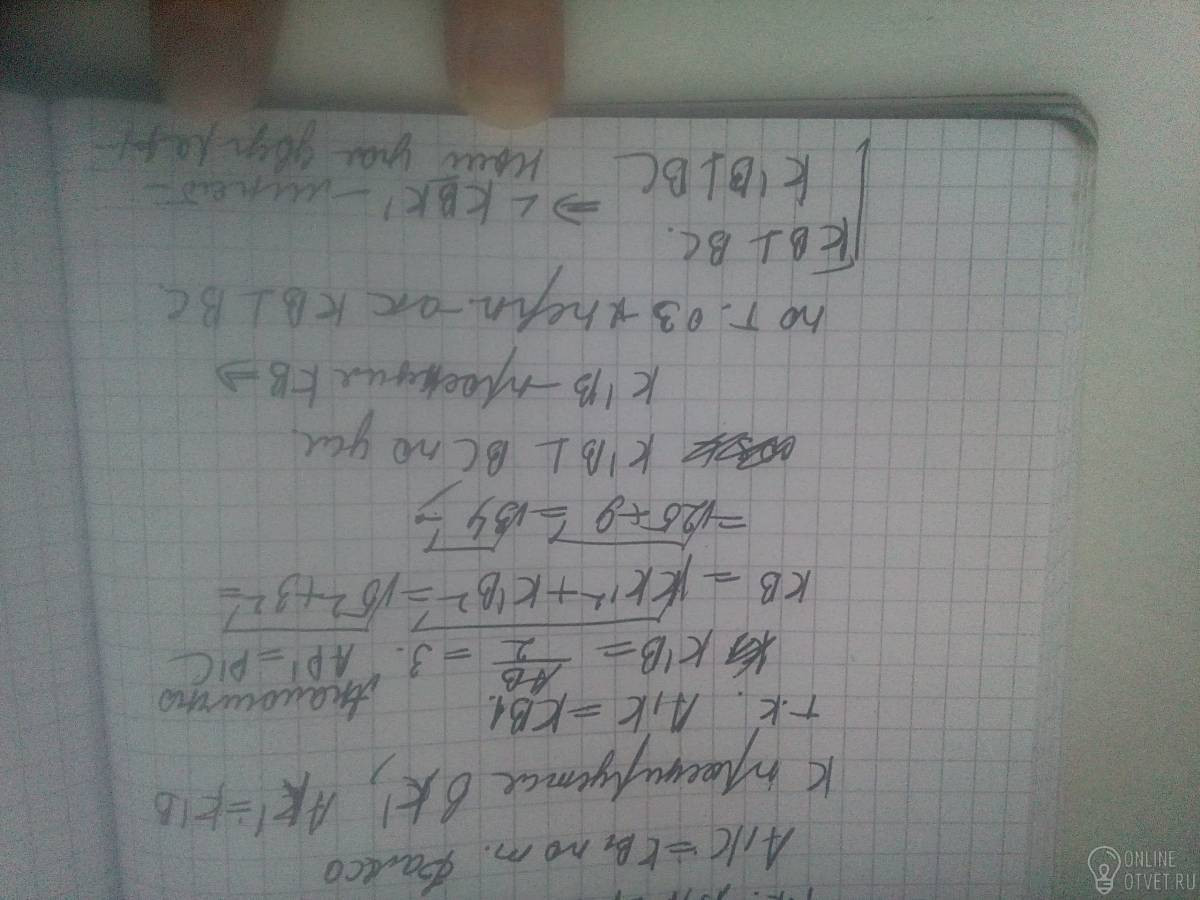 A₁K = KB₁ по т. Фалеса
K проецируется в K', AK' = K'B
т.к. A₁K = KB₁. Аналогично
K'B = AB/2 = 3. AP' = P'C
KB = √KK'² + K'B² = √5² + 3² =
= √25 + 9 = √34
K'B ⊥ BC по усл.
K'B – проекция KB ⇒
по т. о 3х перп-ах KB ⊥ BC.
KB ⊥ BC.
K'B ⊥ BC ⇒ ∠KBK' – линей-
ный угол двугр
ONLINE
OTVET.RU